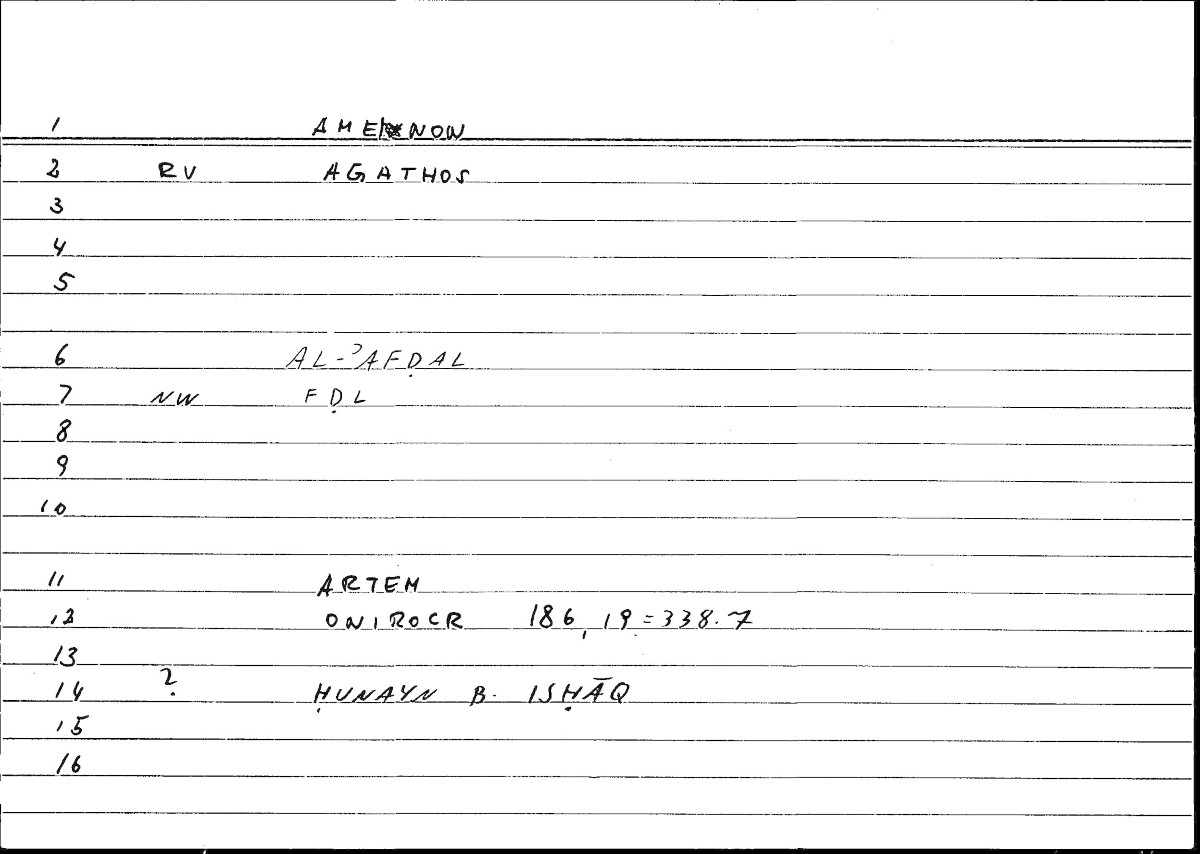 1 AMEINON
2 RV AGATHOS
3
4
5
6 AL-ʾAFḌAL
7 NW FḌL
8
9
10
11 ARTEM
12 ONIROCR 186,19=338.7
13
14 ? ḤUNAYN B. ISḤĀQ
15
16